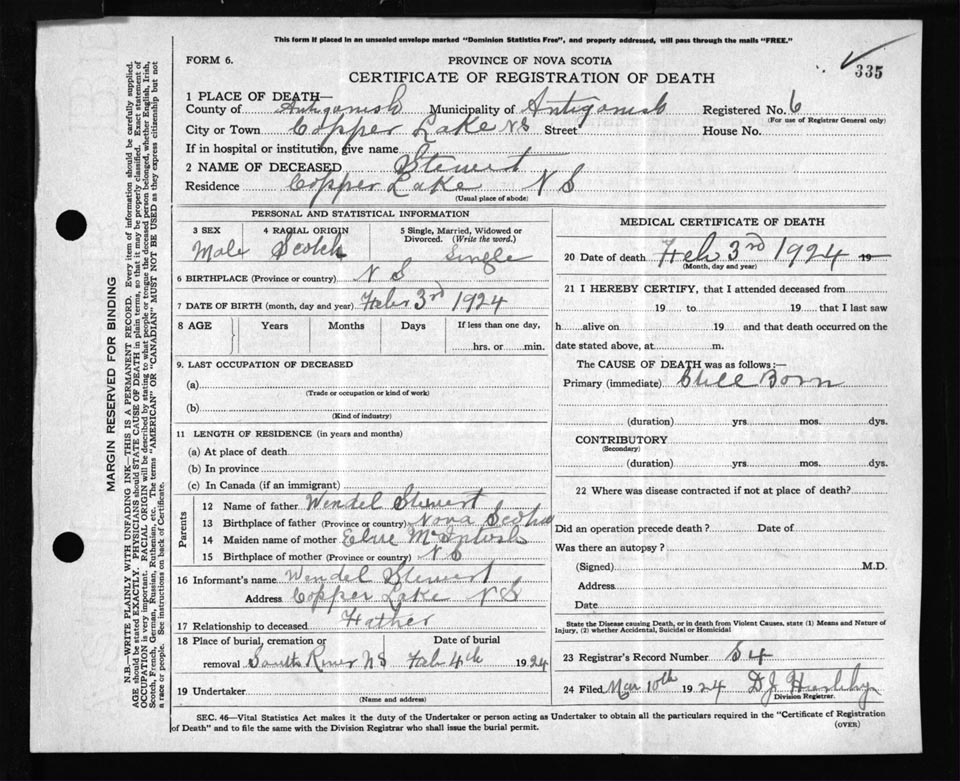 This form if placed in an unsealed envelope marked "Dominion Statistics Free", and properly addressed, will pass through the mails "FREE."
FORM 6.
PROVINCE OF NOVA SCOTIA
CERTIFICATE OF REGISTRATION OF DEATH
335
1 PLACE OF DEATH—
County of Antigonish Municipality of Antigonish Registered No. 6
(For use of Registrar General only)
City or Town Copper Lake NS Street House No.
If in hospital or institution, give name
2 NAME OF DECEASED Stewert
Residence Copper Lake N S
(Usual place of abode)
PERSONAL AND STATISTICAL INFORMATION
3 SEX 4 RACIAL ORIGIN 5 Single, Married, Widowed or Divorced. (Write the word.)
Male Scotch Single
6 BIRTHPLACE (Province or country) N S
7 DATE OF BIRTH (month, day and year) Feb 3rd 1924
8 AGE Years Months Days If less than one day,
hrs. or min.
9. LAST OCCUPATION OF DECEASED
(a)
(Trade or occupation or kind of work)
(b)
(Kind of industry)
11 LENGTH OF RESIDENCE (in years and months)
(a) At place of death
(b) In province
(c) In Canada (if an immigrant)
Parents
12 Name of father Wendel Stewert
13 Birthplace of father (Province or country) Nova Scotia
14 Maiden name of mother McIntosh
15 Birthplace of mother (Province or country) N S
16 Informant's name Wendel Stewert
Address Copper Lake N S
17 Relationship to deceased Father
18 Place of burial, cremation or removal South River NS Date of burial Feb 4th 1924
19 Undertaker
(Name and address)
MEDICAL CERTIFICATE OF DEATH
20 Date of death Feb 3rd 1924 19
(Month, day and year)
21 I HEREBY CERTIFY, that I attended deceased from
19 to 19 that I last saw
h alive on 19 and that death occurred on the
date stated above, at m.
The CAUSE OF DEATH was as follows:—
Primary (immediate) Still Born
(duration) yrs. mos. dys.
CONTRIBUTORY
(Secondary)
(duration) yrs. mos. dys.
22 Where was disease contracted if not at place of death?
Did an operation precede death? Date of
Was there an autopsy?
(Signed) M.D.
Address
Date
State the Disease causing Death, or in death from Violent Causes, state (1) Means and Nature of
Injury, (2) whether Accidental, Suicidal or Homicidal
23 Registrar's Record Number 54
24 Filed Mar 10th 1924 D J
Division Registrar.
SEC. 46—Vital Statistics Act makes it the duty of the Undertaker or person acting as Undertaker to obtain all the particulars required in the "Certificate of Registration
of Death" and to file the same with the Division Registrar who shall issue the burial permit.
(OVER)
MARGIN RESERVED FOR BINDING
N.B.—WRITE PLAINLY WITH UNFADING INK—THIS IS A PERMANENT RECORD. Every item of information should be carefully supplied.
AGE should be stated EXACTLY. PHYSICIANS should STATE CAUSE OF DEATH in plain terms, so that it may be properly classified. Exact statement of
OCCUPATION is very important. RACIAL ORIGIN will be described by stating to what people or tongue the deceased person belonged, whether English, Irish,
Scotch, French, German, Russian, Ruthenian, etc. The terms "AMERICAN" OR "CANADIAN" MUST NOT BE USED as they express citizenship but not
a race or people. See instructions on back of Certificate.